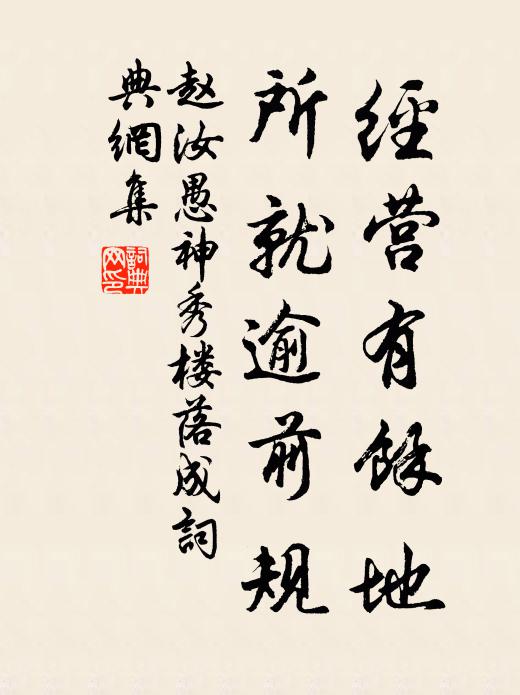 經营有餘地
所就逾前規
赵汝愚神秀楼落成詞
典網集
詞典
网印